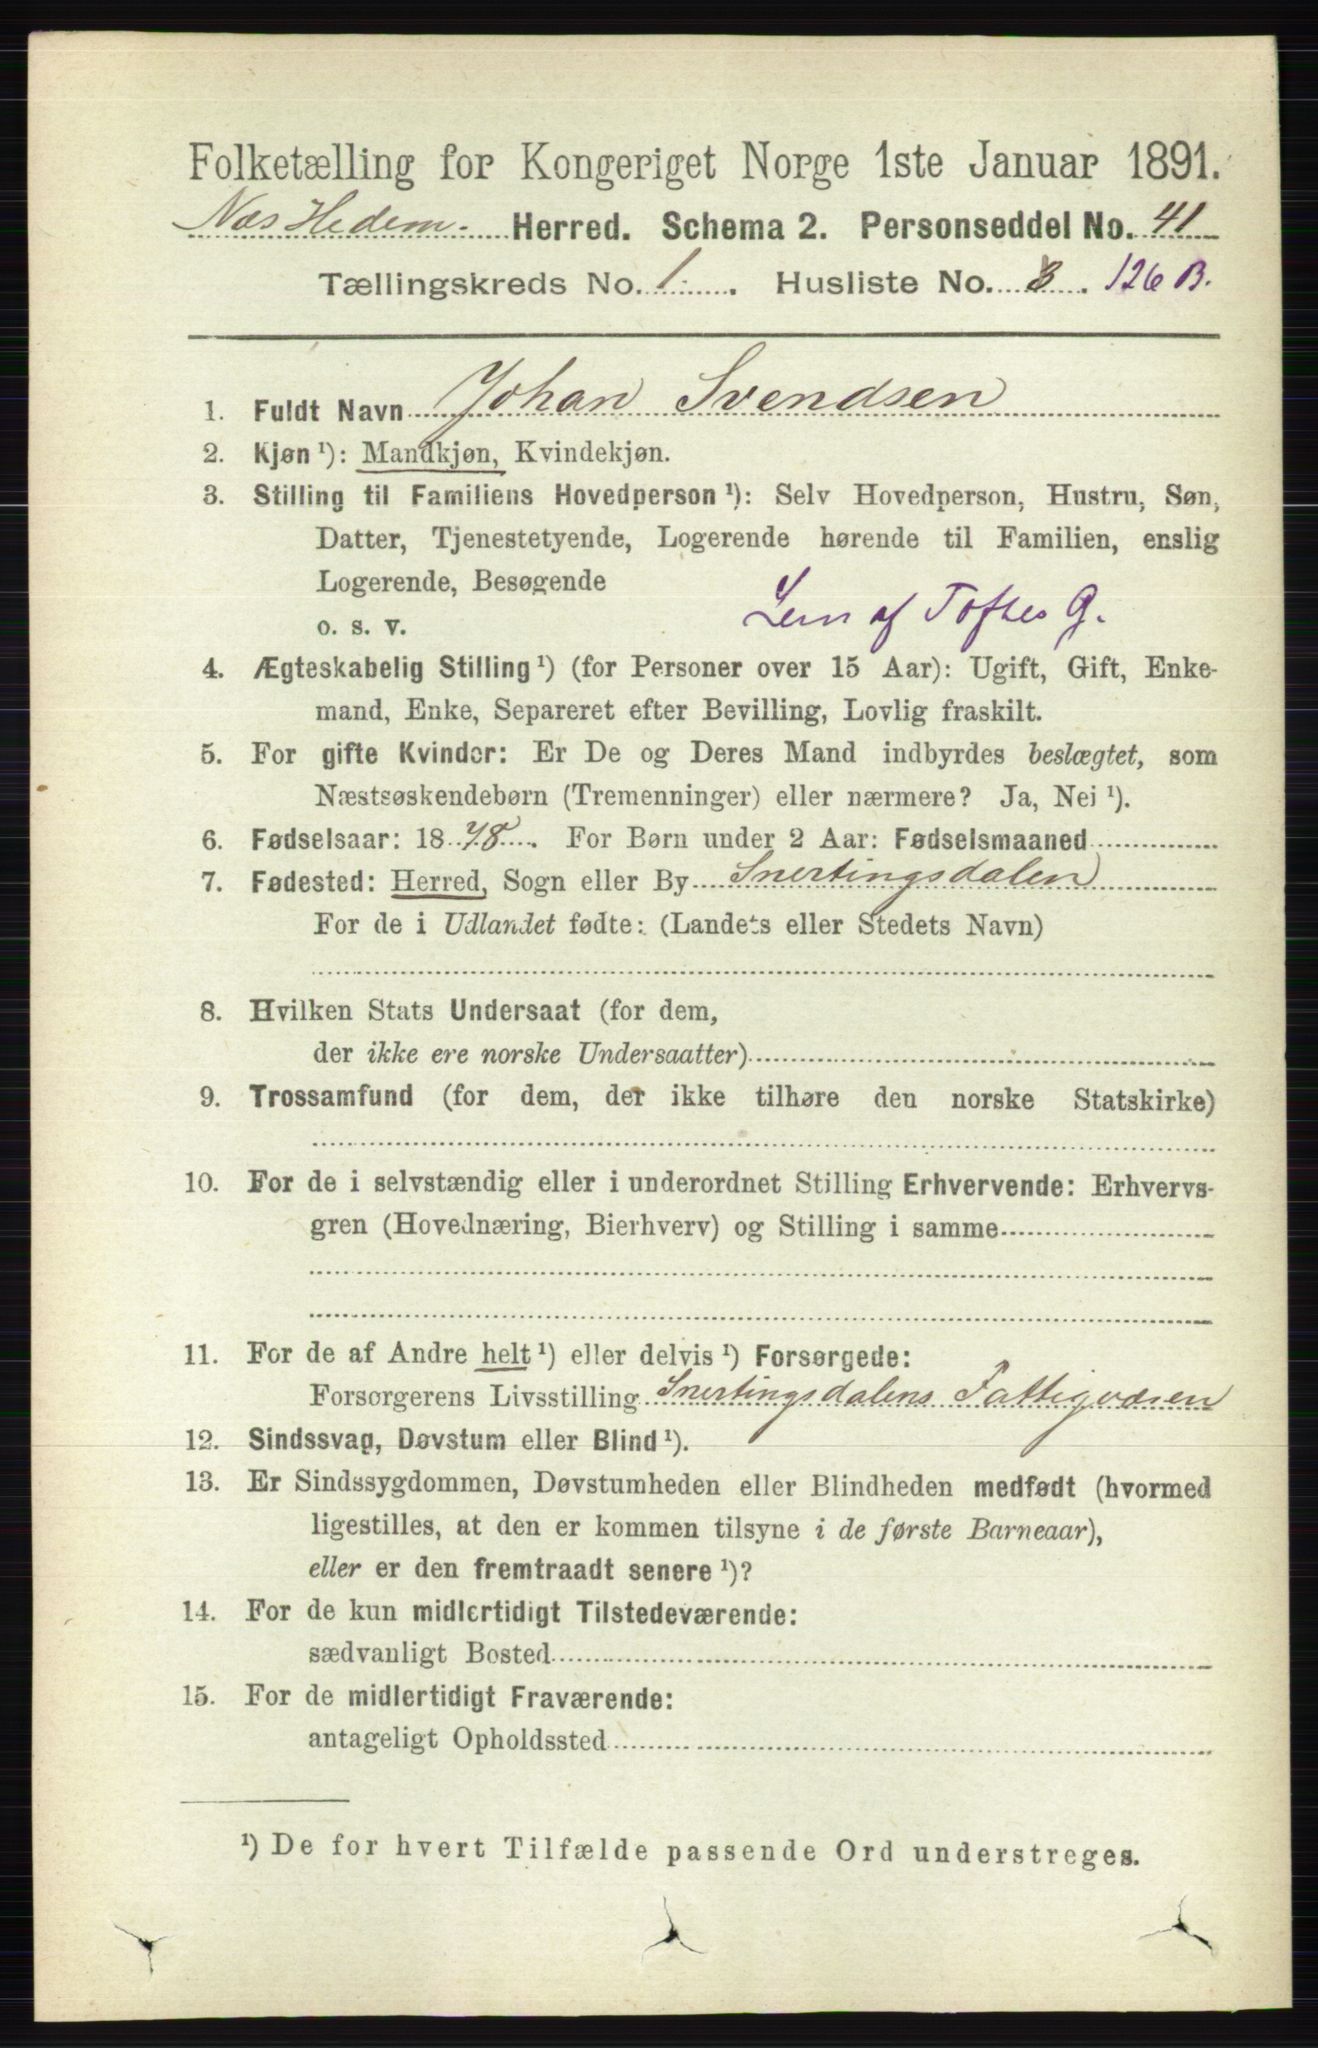 Folketælling for Kongeriget Norge 1ste Januar 1891.
Næs Hedem. Herred. Schema 2. Personseddel No. 41
Tællingskreds No. 1. Husliste No. 8. 126 B.
1. Fuldt Navn Johan Svendsen
2. Kjøn ¹): Mandkjøn, Kvindekjøn.
3. Stilling til Familiens Hovedperson ¹): Selv Hovedperson, Hustru, Søn,
Datter, Tjenestetyende, Logerende hørende til Familien, enslig
Logerende, Besøgende
o. s. v. Lem af Toftes G.
4. Ægteskabelig Stilling ¹) (for Personer over 15 Aar): Ugift, Gift, Enke-
mand, Enke, Separeret efter Bevilling, Lovlig fraskilt.
5. For gifte Kvinder: Er De og Deres Mand indbyrdes beslægtet, som
Næstsøskendebørn (Tremenninger) eller nærmere? Ja, Nei ¹).
6. Fødselsaar: 1878. For Børn under 2 Aar: Fødselsmaaned
7. Fødested: Herred, Sogn eller By Snertingsdalen
For de i Udlandet fødte: (Landets eller Stedets Navn)
8. Hvilken Stats Undersaat (for dem,
der ikke ere norske Undersaatter)
9. Trossamfund (for dem, der ikke tilhøre den norske Statskirke)
10. For de i selvstændig eller i underordnet Stilling Erhvervende: Erhvervs-
gren (Hovednæring, Bierhverv) og Stilling i samme
11. For de af Andre helt ¹) eller delvis ¹) Forsørgede:
Forsørgerens Livsstilling Snertingsdalens Fattigvæsen
12. Sindssvag, Døvstum eller Blind ¹).
13. Er Sindssygdommen, Døvstumheden eller Blindheden medfødt (hvormed
ligestilles, at den er kommen tilsyne i de første Barneaar),
eller er den fremtraadt senere ¹)?
14. For de kun midlertidigt Tilstedeværende:
sædvanligt Bosted
15. For de midlertidigt Fraværende:
antageligt Opholdssted
¹) De for hvert Tilfælde passende Ord understreges.